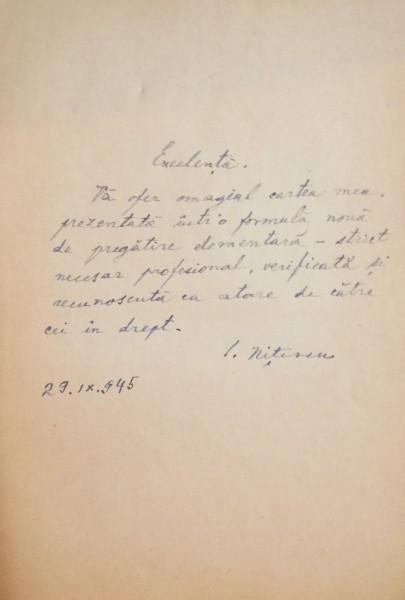 Excelență.
Vă ofer omagial cartea mea,
prezentată într'o formulă nouă
de pregătire elementară – strict
necesar profesional, verificată și
recunoscută ca atare de către
cei în drept.
29.IX.945